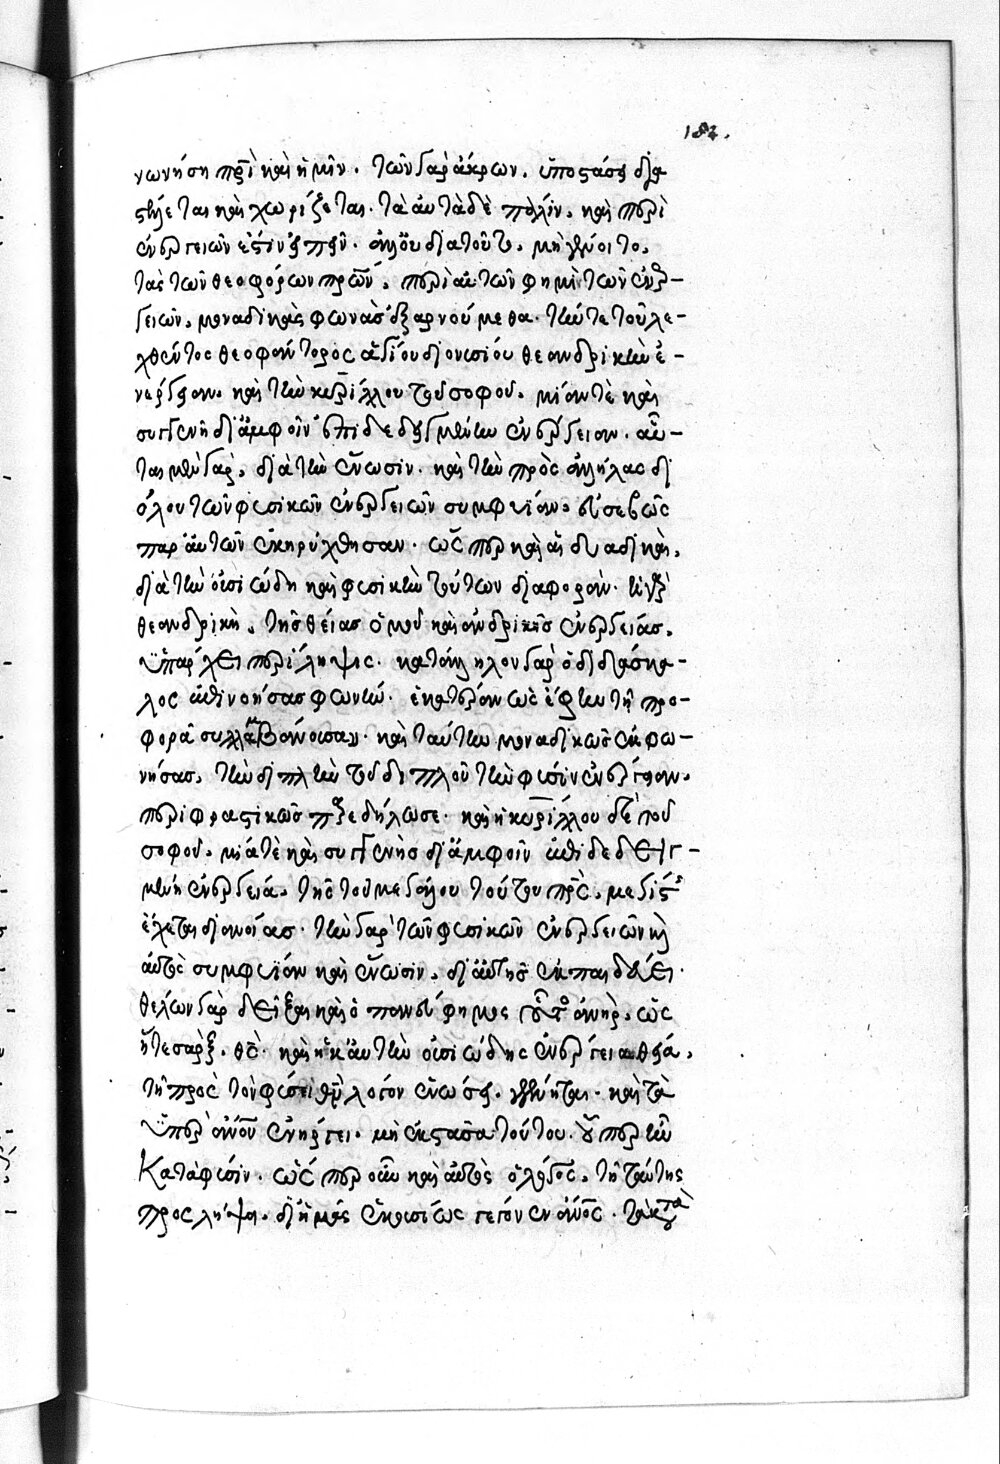 182.
νωνήση πρὶ καὶ ἡμῖν. τῶν γὰρ ἄκρων. ὑποστάσει δια
στέλλεται καὶ χωρίζεται. τὰ αὐτὰ δὲ πάλιν. καὶ περὶ
ἐνεργειῶν ἐστὶν εἰπεῖν. διατοῦτο. μὴ γένοιτο.
τὰς τῶν θεοφόρων πρων. περὶ αὐτῶν φημὶ τῶν ἐνερ-
γειῶν. μοναδικὰς φωνὰς ἐξαρνούμεθα. τήν τε τοῦ λε-
χθέντος θεοφάντορος ἁγίου διονυσίου θεανδρικὴν ἐ-
νέργειαν. καὶ τὴν κυρίλλου τοῦ σοφοῦ. μίαν τὲ καὶ
συγγενῆ δι' ἀμφοῖν ἐπιδεδειγμένην ἐνέργειαν. αὗ-
ται μὲν γὰρ. διὰ τὴν ἕνωσιν. καὶ τὴν πρὸς ἀλλήλας δι
ὅλου τῶν φυσικῶν ἐνεργειῶν συμφυΐαν. εὐσεβῶς
παρ' αὐτῶν ἐκηρύχθησαν. ὥσπερ καὶ αἱ δυαδικαὶ.
διὰ τὴν οὐσιώδη καὶ φυσικὴν τούτων διαφοράν. ἡ γὰρ
θεανδρικὴ. τῆς θείας ὁμοῦ καὶ ἀνδρικῆς ἐνεργείας.
ὑπάρχει περίληψις. κατάλληλον γὰρ ὁ διδάσκα-
λος ἐπινοήσας φωνὴν. ἑκατέραν ὡς ἐφ' ἑνὶ τῇ προ-
φορᾷ συλλαμβάνουσαν. καὶ ταύτην μοναδικῶς ἐκφω-
νήσας. τὴν διπλῆν τοῦ διπλοῦ τὴν φύσιν ἐνέργειαν.
περιφραστικῶς παρεδήλωσε. καὶ ἡ κυρίλλου δὲ τοῦ
σοφοῦ. μία τὲ καὶ συγγενὴς δι' ἀμφοῖν ἐπιδεδειγ-
μένη ἐνέργεια. τῆς τοῦ μεγάλου τούτου πρς. μεγίστ
ἔχεται διανοίας. τὴν γὰρ τῶν φυσικῶν ἐνεργειῶν κ
αὐτὸς συμφυΐαν καὶ ἕνωσιν. δι' αὐτῆς ἐκπαιδεύει.
θέλων γὰρ δεῖξαι καὶ ὁ πανεύφημος οὗτος ἀνήρ. ὡς
ἥτε σὰρξ. θς. καὶ ἡ κατ' αὐτὴν οὐσιώδης ἐνέργεια θεία.
τῇ πρὸς τὸν φύσει θν λόγον ἑνώσει. γεγένηται. καὶ τὰ
ὑπὲρ ἄνον ἐνήργει. μὴ ἐκστᾶσα τούτου. οὗπερ ἦν
κατὰ φύσιν. ὥσπερ οὖν καὶ αὐτὸς ὁ λόγος. τῇ ταύτης
προσλήψει. δι' ἡμᾶς ἐκουσίως γέγονεν ἄνος. τὰ κατὰ